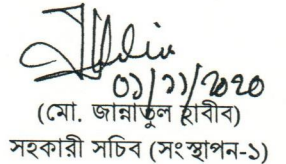 ০১/১১/২০২০
(মো. জান্নাতুল হাবীব)
সহকারী সচিব (সংস্থাপন-১)